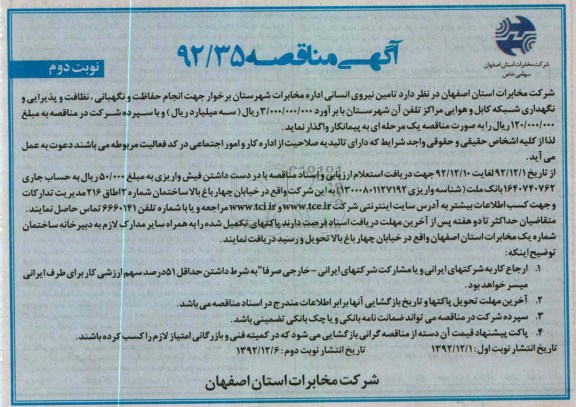 شرکت مخابرات استان اصفهان
سهامی خاص
آگهی مناقصه ۹۲/۳۵
نوبت دوم
شرکت مخابرات استان اصفهان در نظر دارد تامین نیروی انسانی اداره مخابرات شهرستان برخوار جهت انجام حفاظت و نگهبانی ، نظافت و پذیرایی و
نگهداری شبکه کابل و هوایی مراکز تلفن آن شهرستان با برآورد ۳/۰۰۰/۰۰۰/۰۰۰ ریال ( سه میلیارد ریال ) و با سپرده شرکت در مناقصه به مبلغ
۱۲۰/۰۰۰/۰۰۰ ریال را به صورت مناقصه یک مرحله ای به پیمانکار واگذار نماید.
لذا از کلیه اشخاص حقیقی و حقوقی واجد شرایط که دارای تائیدیه صلاحیت از اداره کار و امور اجتماعی در کد فعالیت مربوطه می باشند دعوت به عمل
می آید.
از تاریخ ۹۲/۱۲/۱ لغایت ۹۲/۱۲/۱۰ جهت دریافت استعلام ارزیابی و اسناد مناقصه با در دست داشتن فیش واریزی به مبلغ ۵۰/۰۰۰ ریال به حساب جاری
۱۶۴۰۷۴۰۷۶۲ بانک ملت ( شناسه واریزی ۱۳۰۰۰۸۰۱۱۲۷۱۹۲ ) به این شرکت واقع در خیابان چهارباغ بالا ساختمان شماره ۲ اطاق ۲۱۶ مدیریت تدارکات
و جهت کسب اطلاعات بیشتر به آدرس سایت اینترنتی شرکت www.tce.ir و www.tci.ir مراجعه و یا با شماره تلفن ۶۶۶۰۱۴۱ تماس حاصل نمایند.
متقاضیان حداکثر تا دو هفته پس از آخرین مهلت دریافت اسناد فرصت دارند پاکتهای تکمیل شده را به همراه سایر مدارک لازم به دبیرخانه ساختمان
شماره یک مخابرات استان اصفهان واقع در خیابان چهارباغ بالا تحویل و رسید دریافت نمایند.
توضیح اینکه:
۱. ارجاع کار به شرکتهای ایرانی و یا مشارکت شرکتهای ایرانی - خارجی صرفا" به شرط داشتن حداقل ۵۱ درصد سهم ارزشی کار برای طرف ایرانی
میسر خواهد بود.
۲. آخرین مهلت تحویل پاکتها و تاریخ بازگشایی آنها برابر اطلاعات مندرج در اسناد مناقصه می باشد.
۳. سپرده شرکت در مناقصه می تواند ضمانت نامه بانکی و یا چک بانکی تضمینی باشد.
۴. پاکت پیشنهاد قیمت آن دسته از مناقصه گران بازگشایی می شود که در کمیته فنی و بازرگانی امتیاز لازم را کسب کرده باشند.
تاریخ انتشار نوبت اول : ۱۳۹۲/۱۲/۱ تاریخ انتشار نوبت دوم : ۱۳۹۲/۱۲/۶
شرکت مخابرات استان اصفهان